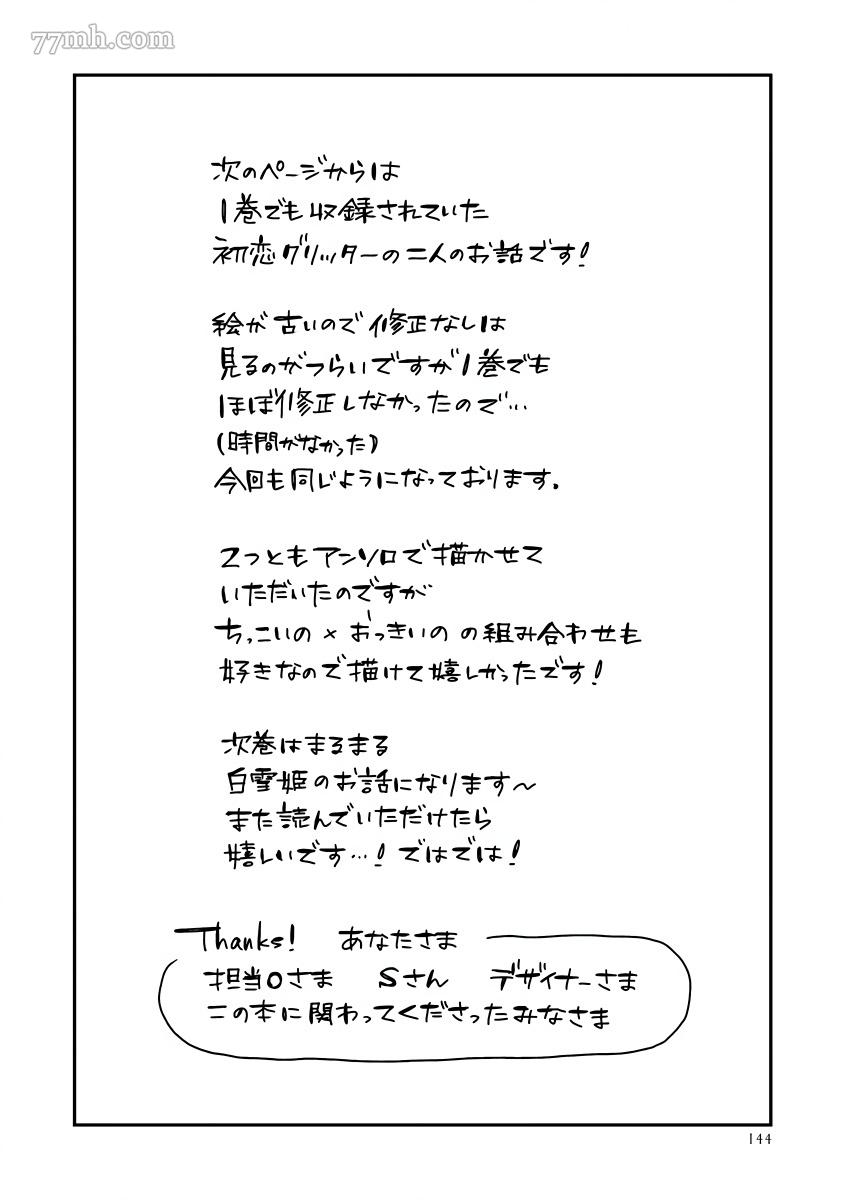 77mh.com
次のページからは
1巻でも収録されていた
初恋グリッターの二人のお話です!
絵が古いので修正なしは
見るのがつらいですが1巻でも
ほぼ修正しなかったので…
(時間がなかった)
今回も同じようになっております。
2つともアンソロで描かせて
いただいたのですが
ちっこいの×おっきいのの組み合わせも
好きなので描けて嬉しかったです!
次巻はまるまる
白雪姫のお話になります〜
また読んでいただけたら
嬉しいです…!ではでは!
Thanks! あなたさま
担当Oさま Sさん デザイナーさま
この本に関わってくださったみなさま
144